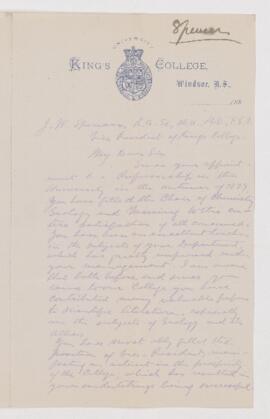 Spencer
UNIVERSITY
KING'S COLLEGE,
Windsor, N.S.,
188
J. W. Spencer, B.A. Sc, M.A., Ph.D., F.G.S.
Vice President of Kings College
My Dear Sir
Since your appoint-
ment to a Professorship in this
University in the autumn of 1879
You have filled the Chair of Chemistry
Geology and Mining to the en-
tire satisfaction of all concerned.
You have been an excellent teacher
in the subjects of your Department,
which has greatly improved under
your management. I am aware
that both before and since you
came to our College you have
contributed many valuable papers
to Scientific literature, especially
on the subjects of Geology and its
allies.
You have most ably filled the
position of Vice-President, mani-
festing an interest in the prosperity
of the College, which has resulted in
your undertakings being successful